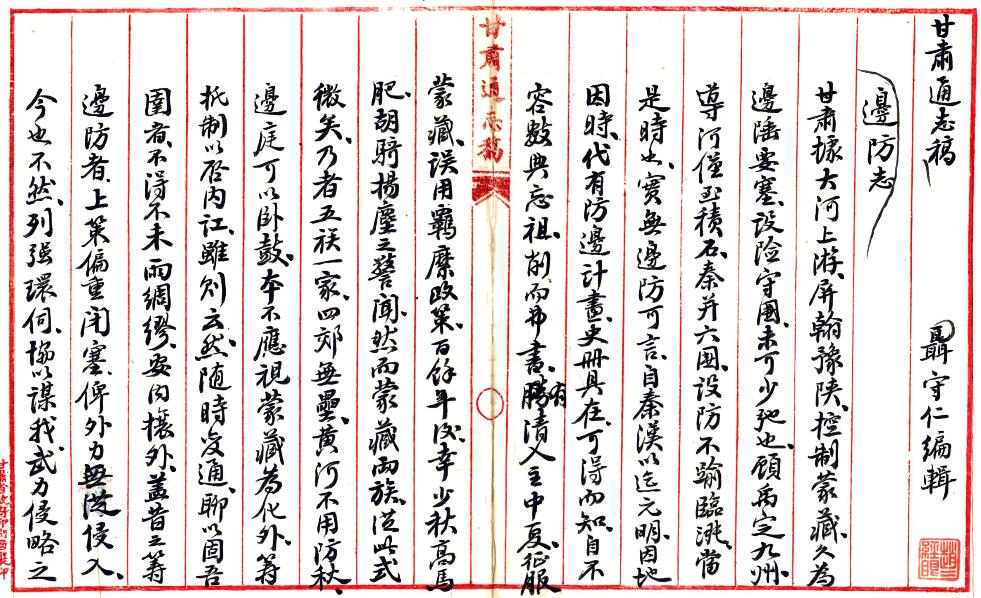 甘肅通志稿
聶守仁編輯
邊防志
甘肅據大河上游、屏翰豫陝、控制蒙藏、久為
邊陲要塞、設險守國、未可少弛也、顧禹定九州、
導河僅至積石、秦并六國、設防不踰臨洮、當
是時也、實無邊防可言、自秦漢以迄元明、因地
因時、代有防邊計畫、史冊具在、可得而知、自不
容數典忘祖、削而弗書、有清入主中夏、征服
甘肅通志稿
蒙藏、誤用羈縻政策、百餘年後、幸少秋高馬
肥、胡騎揚塵之警聞、然而蒙藏兩族、從此式
微矣、乃者五族一家、四郊無壘、黃河不用防秋、
邊庭可以卧鼓、本不應視蒙藏為化外、籌
抵制以啓內訌、雖則云然、隨時變通、聊以固吾
圉者、不得不未雨綢繆、安內攘外、蓋昔之籌
邊防者、上策偏重閉塞、俾外力無從侵入、
今也不然、列强環伺、協以謀我、武力侵略之